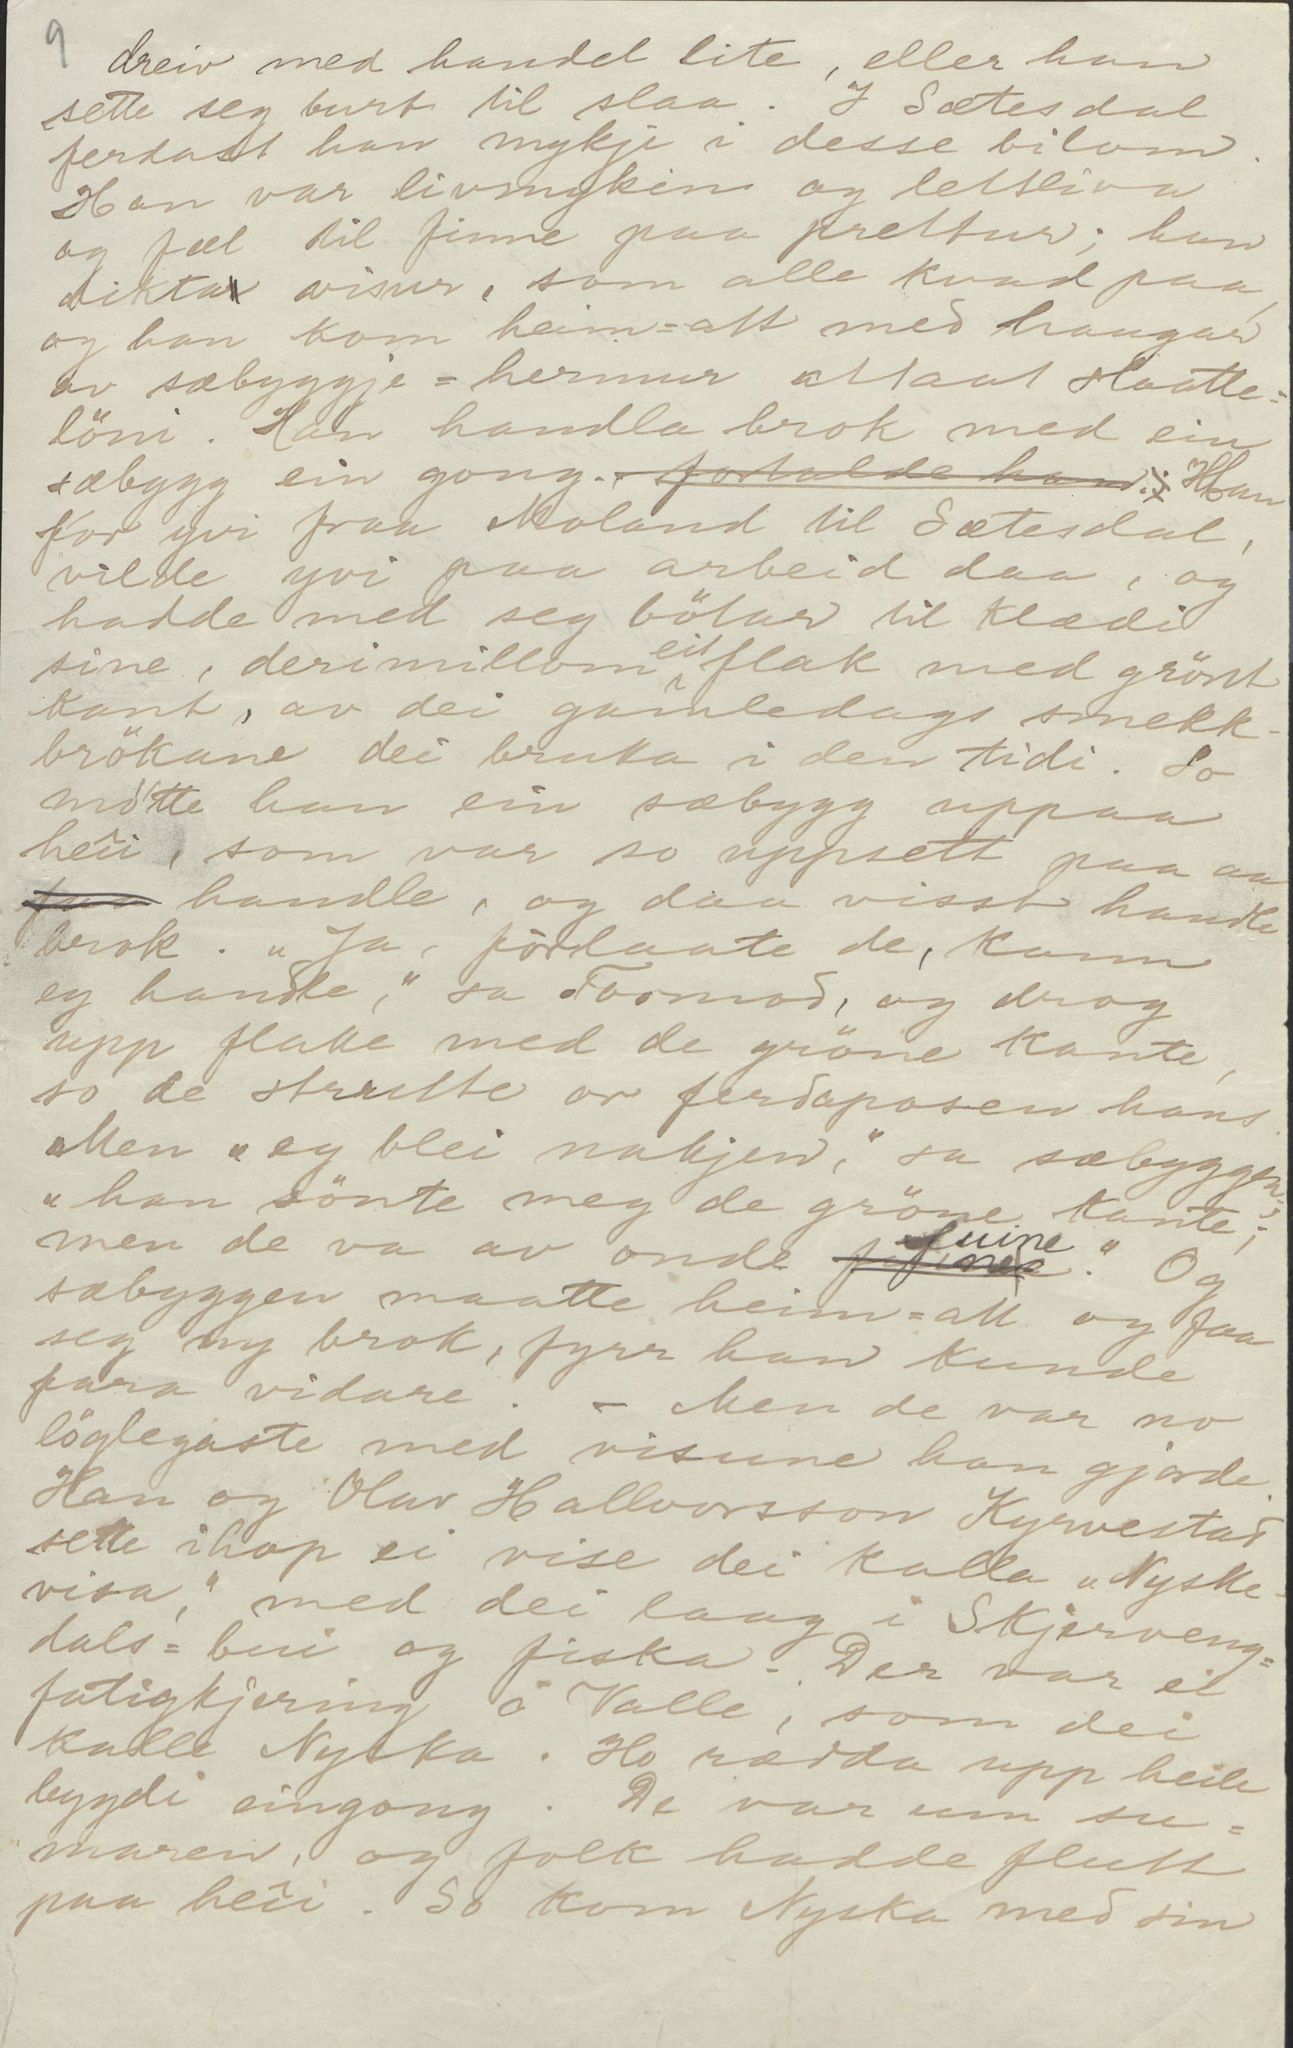 9
dreiv med handel lite, eller han
sette seg burt til slaa. I Sætesdal
ferdast han mykje i desse bilom.
Han var livmykin og lettliva
og fæl til finne paa prettur; han
dikta visur, som alle kvad paa,
og han kom heim=att med haugar
av sæbyggje=hermur attaat Slaatte=
löni. Han handla brok med ein
sæbygg ein gong. fortalde han: Han
for yvi fraa Moland til Sætesdal,
vilde yvi paa arbeid daa, og
hadde med seg bötar til klædi
sine, derimillom eit flak med grönt
kant, av dei gamledags smekk-
brökane dei bruka i den tidi. So
mötte han ein sæbygg uppaa
heii, som var so uppsett paa aa
faa handle, og daa visst handle
brok. "Ja, förlaate de, kann
eg handle," sa Tormod, og drog
upp flake med de gröne kante,
so de strutte or ferdaposen hans.
"Men "eg blei nakjen," sa sæbyggen;
"han sönte meg de gröne kante;
men de va av onde fuine." Og
sæbyggen maatte heim=att og faa
seg ny brok, fyrr han kunde
fara vidare. - Men de var no
löglegaste med visune han gjorde.
Han og Olav Hallvorsson Kyrvestad
sette ihop ei vise dei kalla "Nyske-
visa," med dei laag i Skjerveng=
dals=bui og fiska. Der var ei
fatigkjering i Valle, som dei
kalle Nyska. Ho rædda upp heile
bygdi eingong. De var um su=
maren, og folk hadde flutt
paa heii. So kom Nyska med sin